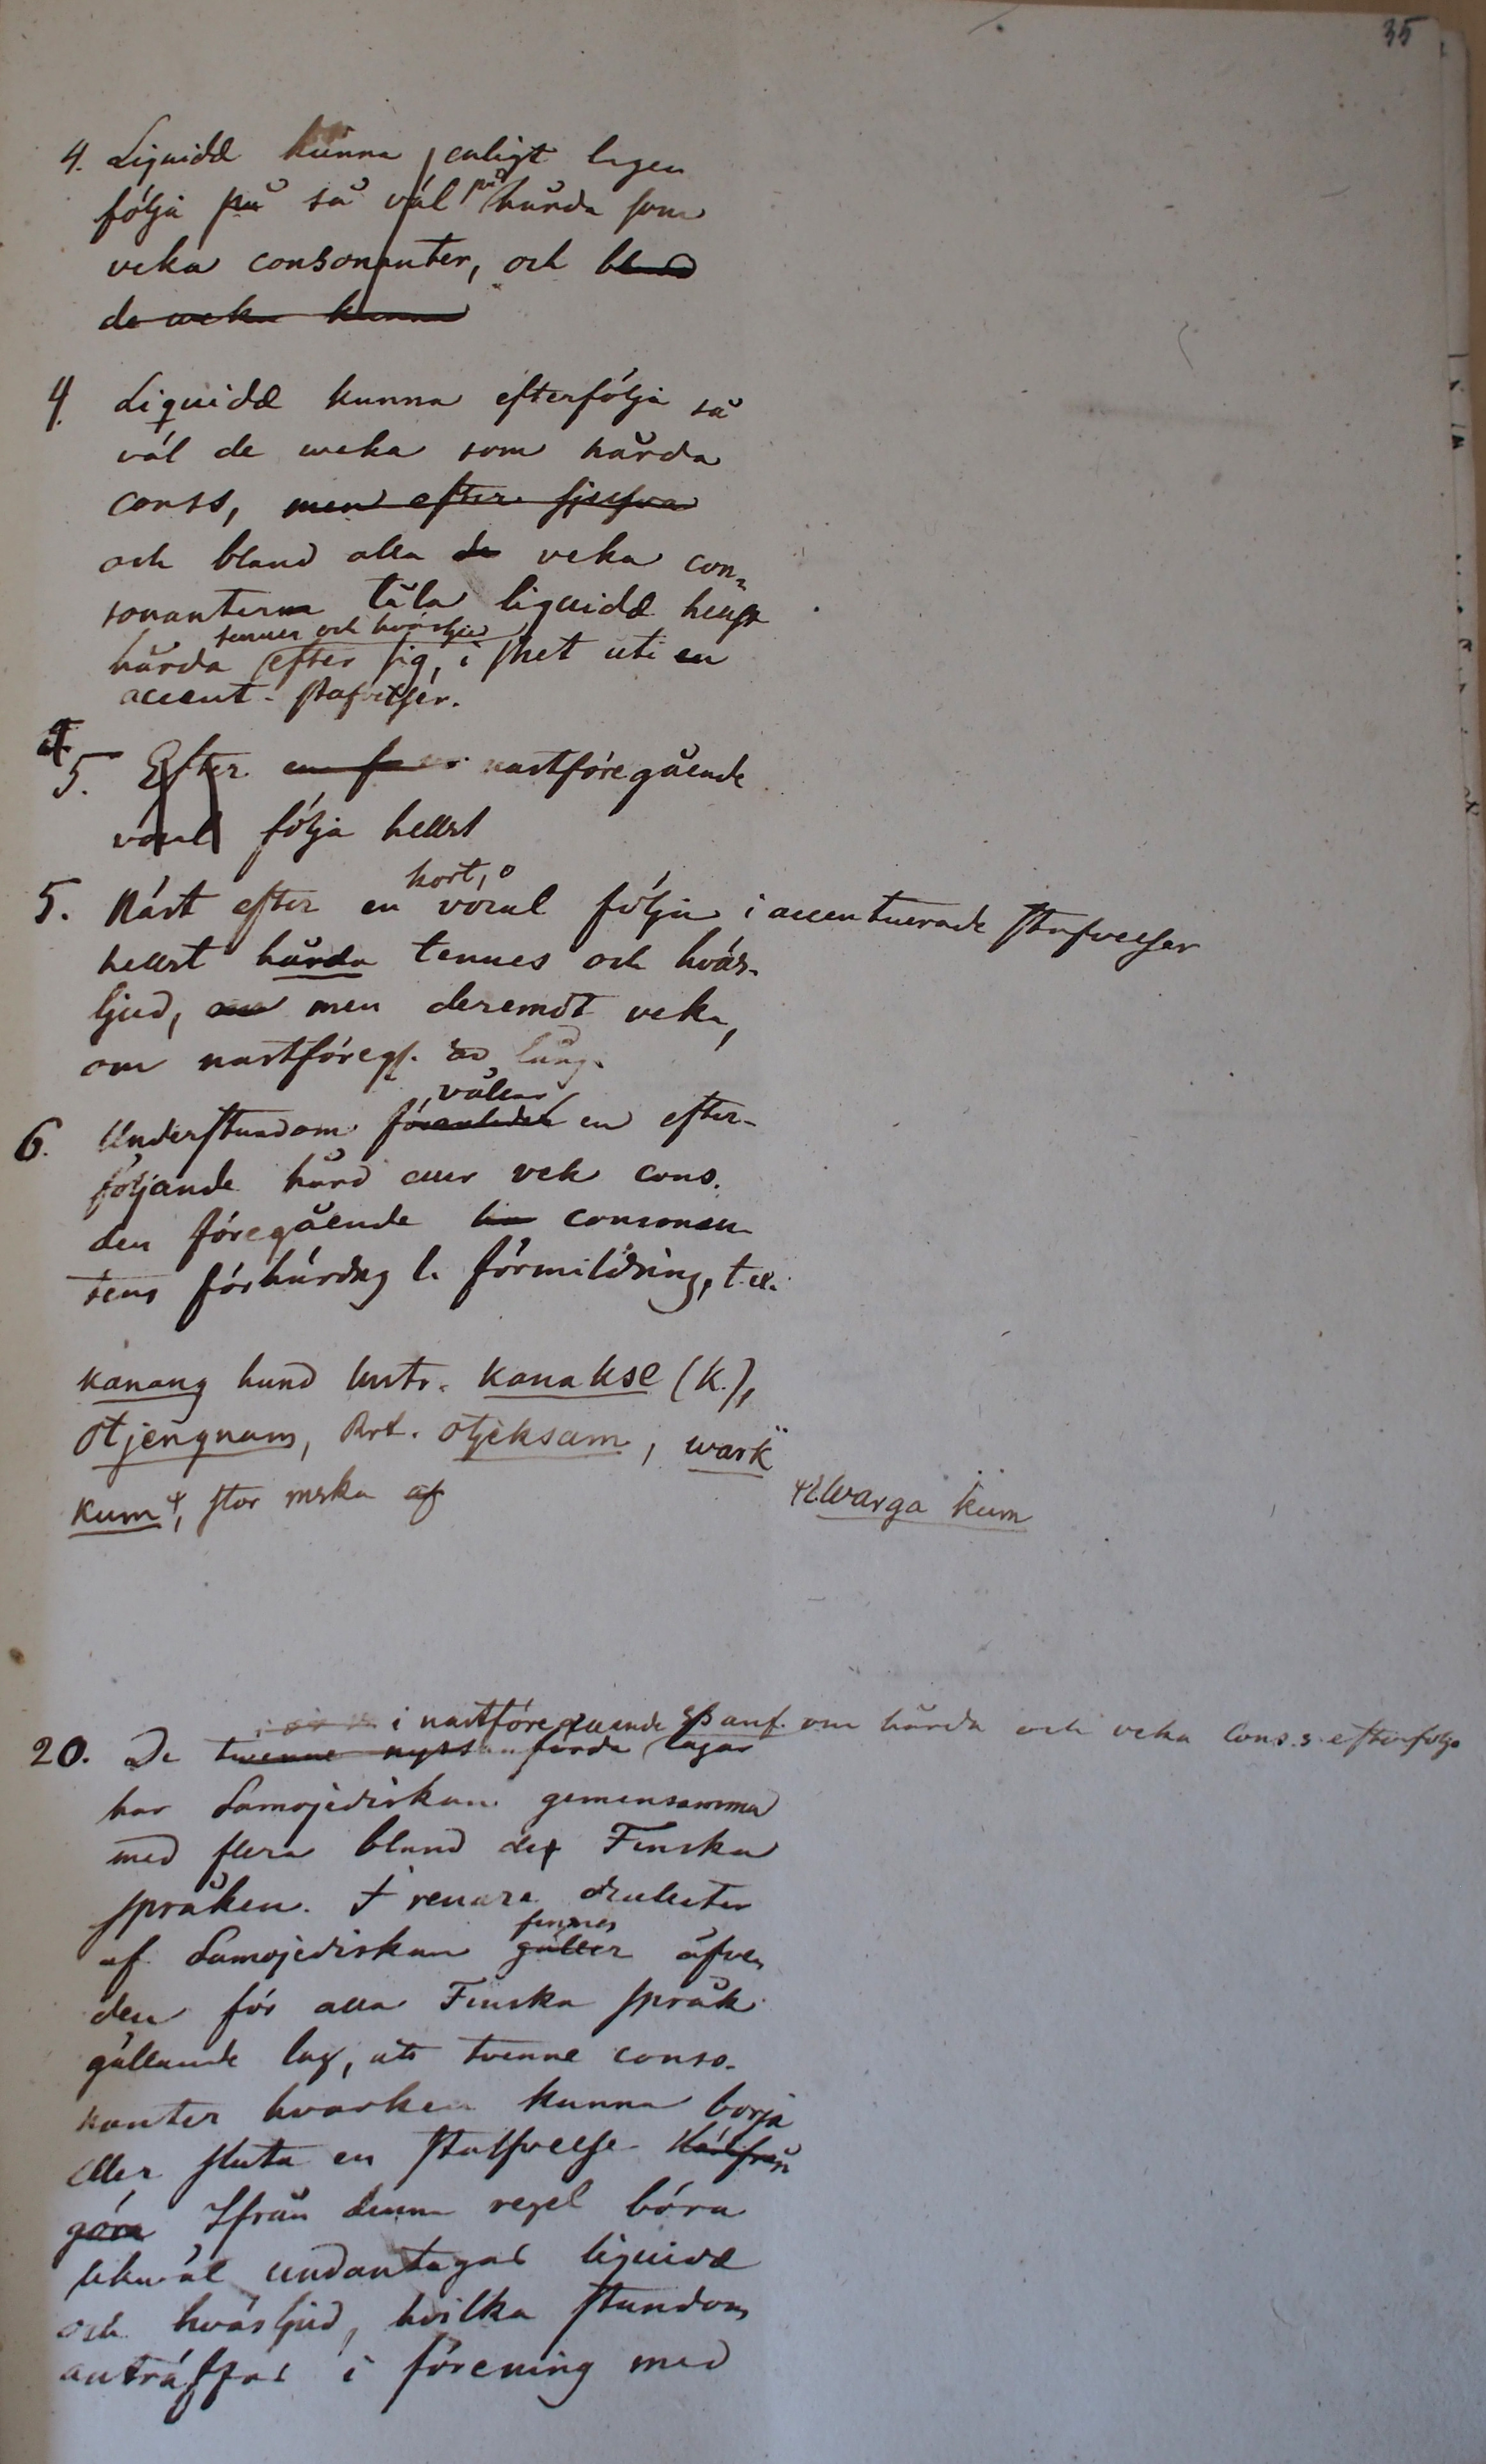 35
4. Liquidæ kunna enligt lagen
följa på så väl på hårda som
veka consonanter, och bland
de weka kunna
4. Liquidæ kunna efterfölja så
väl de weka som hårda
conss, men efter sjelfva
och bland alla de veka con-
sonanterna tåla liquidæ helst
tenues och hväsljud
hårda efter sig, i shet uti en
accent-stafvelser.
5. Efter nästföregående
vocal följa hellst
kort,
5. Näst efter en vocal följa i accentuerade stafvelser
hellst hårda tenues och hväs-
ljud, men deremot veka,
om nästföreg. är lång.
vållar
6. Understundom föranleder en efter-
följande hård eller vek cons.
den föregående consonan-
tens förhårdng l. förmildring, t.ex.
kanang hund Instr. kanakse (K.),
otjengnam, Prt. otjeksam, wark
kum, stor meska af
Warga kum
i nästföregående §§ anf. om hårda och veka cons.s efterfölj.
20. De twenne nyss anförda lagar
har Samojediskan gemensamma
med flera bland de Finska
språken. I renare dialecter
finnes
af Samojediskan gäller äfven
den för alla Finska språk
gällande lag, att tvenne conso-
nanter hvarken kunna börja
eller sluta en stafvelse Härifrån
göra Ifrån denna regel böra
likväl undantagas liquidæ
och hväsljud, hvilka stundom
anträffas i förening med